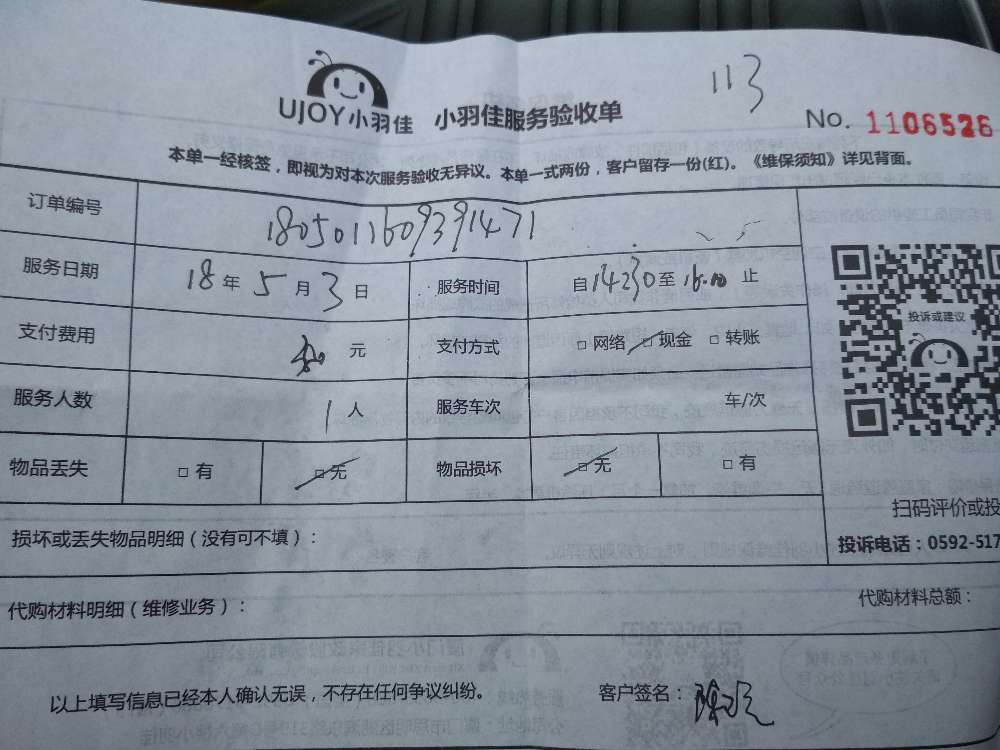 113
UJOY小羽佳 小羽佳服务验收单
No. 1106526
本单一经核签，即视为对本次服务验收无异议。本单一式两份，客户留存一份(红)。《维保须知》详见背面。
订单编号 1805011609391471
服务日期 18年5月3日 服务时间 自14:30至16:00止
支付费用 元 支付方式 □网络 □现金 □转账
服务人数 1人 服务车次 车/次
物品丢失 □有 □无 物品损坏 □无 □有
投诉或建议
扫码评价或投
投诉电话：0592-517
损坏或丢失物品明细（没有可不填）：
代购材料明细（维修业务）： 代购材料总额：
以上填写信息已经本人确认无误，不存在任何争议纠纷。 客户签名：